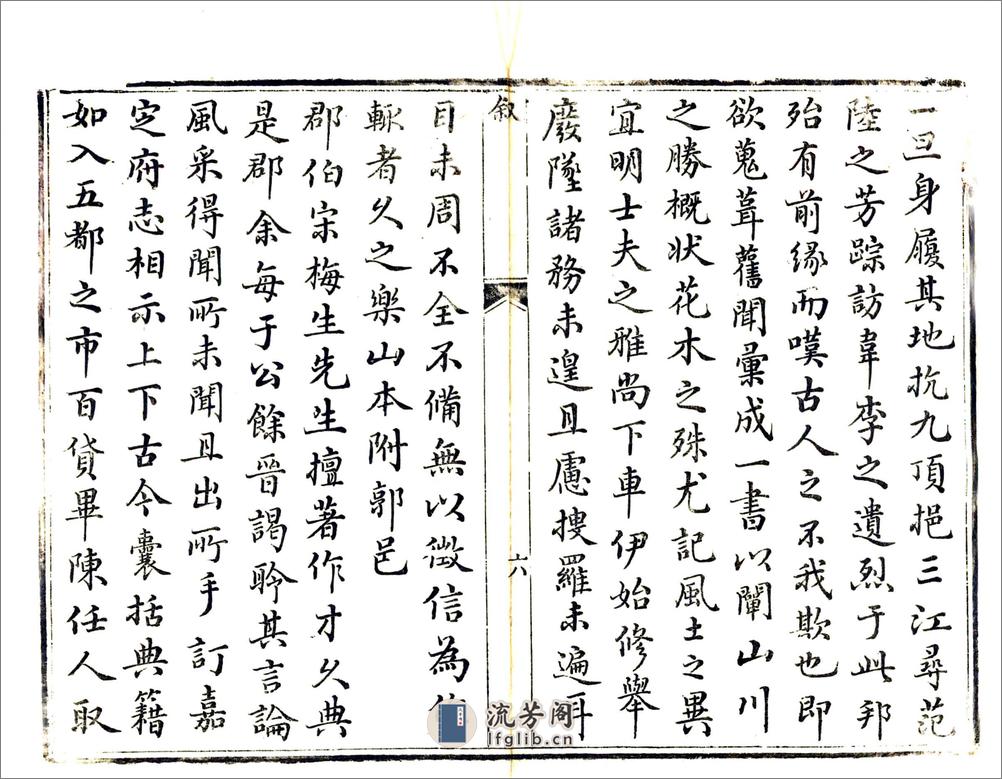 一旦身履其地抗九頂挹三江尋范
陸之芳踪訪韋李之遺烈于此邦
殆有前緣而嘆古人之不我欺也即
欲蒐葺舊聞彙成一書以闡山川
之勝概狀花木之殊尤記風土之異
宜明士夫之雅尚下車伊始修舉
廢墜諸務未遑且慮搜羅未遍耳
敘
六
目未周不全不備無以徵信為作
輒者久之樂山本附郭邑
郡伯宋梅生先生擅著作才久典
是郡余每于公餘晉謁聆其言論
風采得聞所未聞且出所手訂嘉
定府志相示上下古今囊括典籍
如入五都之市百貨畢陳任人取
流芳阁
lfglib.cn